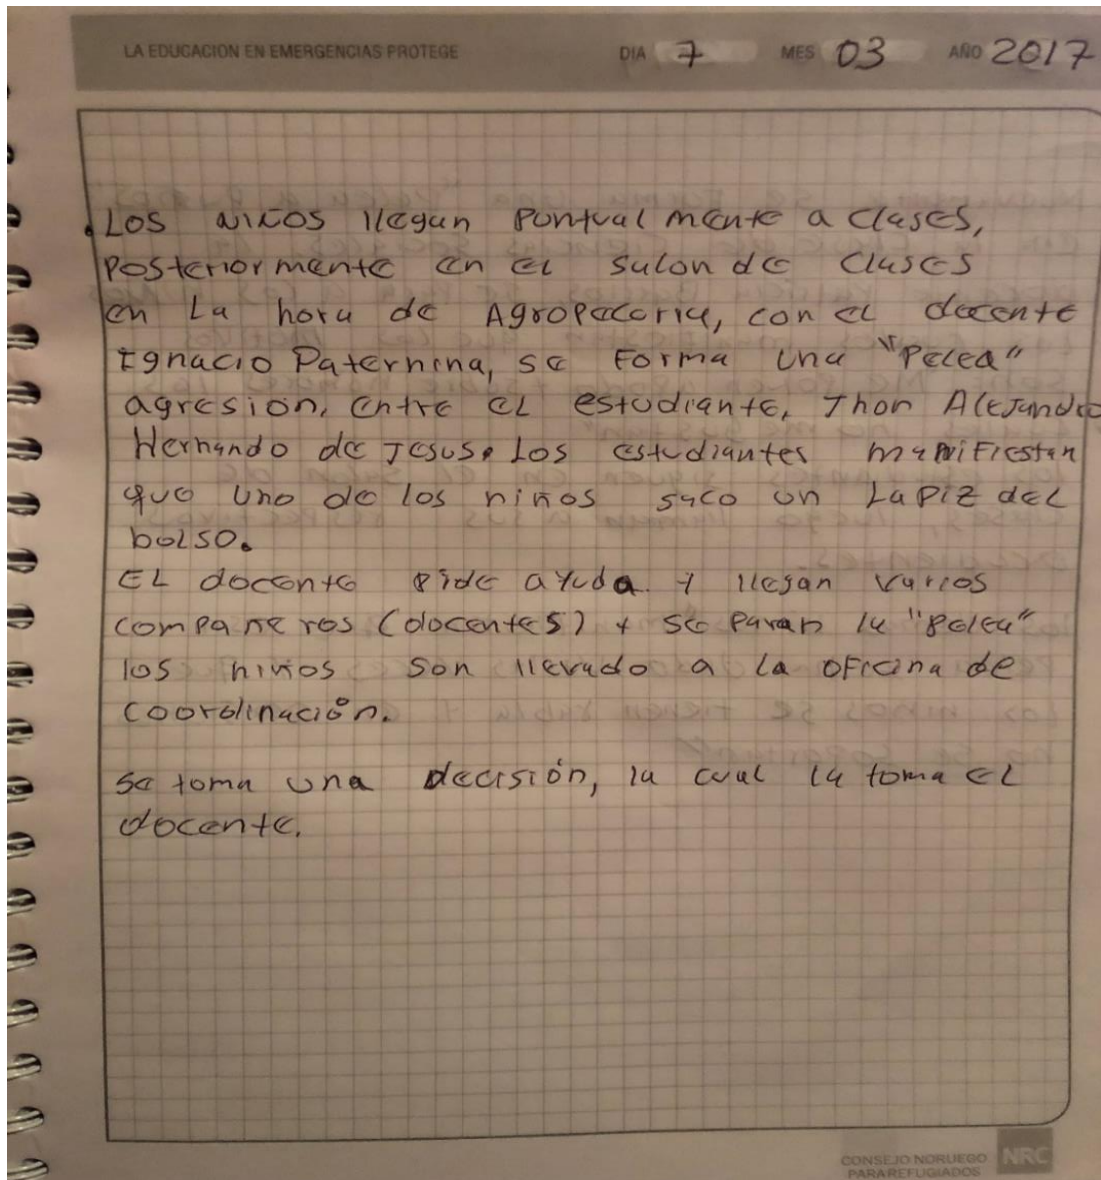 LA EDUCACION EN EMERGENCIAS PROTEGE DIA 7 MES 03 AÑO 2017
. Los niños llegan puntual mente a clases,
posterior mente en el salon de clases
en La hora de Agropecaria, con el docente
Ignacio Paternina, se Forma una "Pelea"
agresion, entre el estudiante, Jhon Alejandro
Hernando de Jesus. Los estudiantes manifiestan
que uno de los niños saco un Lapiz del
bolso.
EL docente pide ayuda y llegan varios
compañeros (docentes) y se paran la "Pelea"
los niños son llevado a la oficina de
coordinación.
Se toma una decisión, la cual la toma el
docente.
CONSEJO NORUEGO
PARA REFUGIADOS
NRC